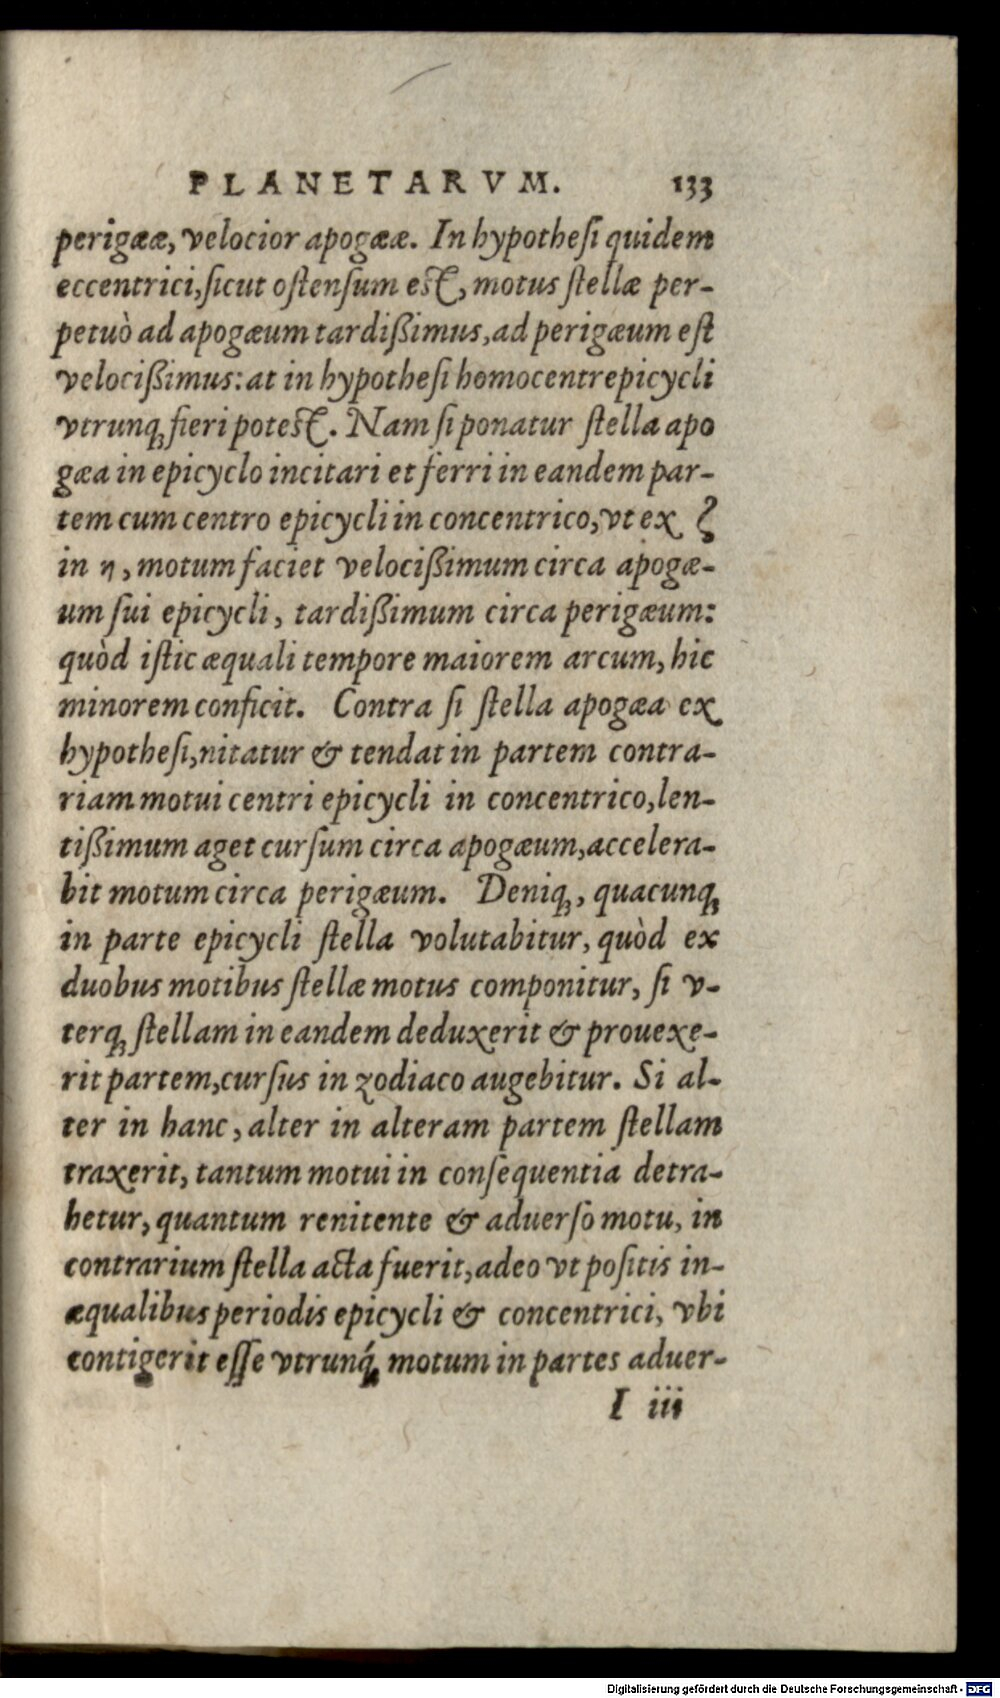 PLANETARVM. 133
perigææ, velocior apogææ. In hypothesi quidem
eccentrici, sicut ostensum est, motus stellæ per-
petuò ad apogæum tardißimus, ad perigæum est
velocißimus: at in hypothesi homocentrepicycli
vtrunq; fieri potest. Nam si ponatur stella apo
gæa in epicyclo incitari et ferri in eandem par-
tem cum centro epicycli in concentrico, vt ex ζ
in η, motum faciet velocißimum circa apogæ-
um sui epicycli, tardißimum circa perigæum:
quòd istic æquali tempore maiorem arcum, hic
minorem conficit. Contra si stella apogæa ex
hypothesi, nitatur & tendat in partem contra-
riam motui centri epicycli in concentrico, len-
tißimum aget cursum circa apogæum, accelera-
bit motum circa perigæum. Deniq;, quacunq;
in parte epicycli stella volutabitur, quòd ex
duobus motibus stellæ motus componitur, si v-
terq; stellam in eandem deduxerit & prouexe-
rit partem, cursus in zodiaco augebitur. Si al-
ter in hanc, alter in alteram partem stellam
traxerit, tantum motui in consequentia detra-
hetur, quantum renitente & aduerso motu, in
contrarium stella acta fuerit, adeo vt positis in-
æqualibus periodis epicycli & concentrici, vbi
contigerit esse vtrunq́; motum in partes aduer-
I iii
Digitalisierung gefördert durch die Deutsche Forschungsgemeinschaft - DFG